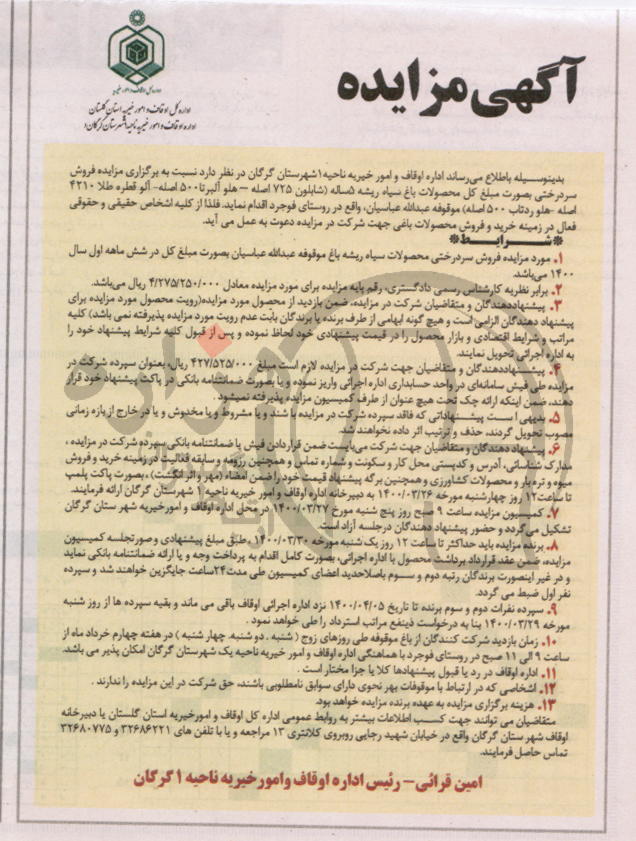 آگهی مزایده
اداره کل اوقاف و امور خیریه
اداره کل اوقاف و امور خیریه استان گلستان
اداره اوقاف و امور خیریه ناحیه۱شهرستان گرگان
بدینوسیله باطلاع می‌رساند اداره اوقاف و امور خیریه ناحیه۱شهرستان گرگان در نظر دارد نسبت به برگزاری مزایده فروش
سردرختی بصورت مبلغ کل محصولات باغ سیاه ریشه ۵ساله (شابلون ۷۲۵ اصله – هلو آلبرتا ۵۰۰ اصله- آلو قطره طلا ۴۲۱۰
اصله -هلو ردتاب ۵۰۰ اصله) موقوفه عبدالله عباسیان، واقع در روستای فوجرد اقدام نماید. فلذا از کلیه اشخاص حقیقی و حقوقی
فعال در زمینه خرید و فروش محصولات باغی جهت شرکت در مزایده دعوت به عمل می آید.
*شــرایـط*
۱. مورد مزایده فروش سردرختی محصولات سیاه ریشه باغ موقوفه عبدالله عباسیان بصورت مبلغ کل در شش ماهه اول سال
۱۴۰۰ می‌باشد.
۲. برابر نظریه کارشناس رسمی دادگستری، رقم پایه مزایده برای مورد مزایده معادل ۴/۲۷۵/۲۵۰/۰۰۰ ریال می‌باشد.
۳. پیشنهاددهندگان و متقاضیان شرکت در مزایده، ضمن بازدید از محصول مورد مزایده(رویت محصول مورد مزایده برای
پیشنهاد دهندگان الزامی است و هیچ گونه ابهامی از طرف برنده یا برندگان بابت عدم رویت مورد مزایده پذیرفته نمی باشد) کلیه
مراتب و شرایط اقتصادی و بازار محصول را در قیمت پیشنهادی خود لحاظ نموده و پس از قبول کلیه شرایط پیشنهاد خود را
به اداره اجرائی تحویل نمایند.
۴. پیشنهاددهندگان و متقاضیان جهت شرکت در مزایده لازم است مبلغ ۴۲۷/۵۲۵/۰۰۰ ریال، بعنوان سپرده شرکت در
مزایده طی فیش سامانه‌ای در واحد حسابداری اداره اجرائی واریز نموده و یا بصورت ضمانتنامه بانکی در پاکت پیشنهاد خود قرار
دهند، ضمن اینکه ارائه چک تحت هیچ عنوان از طرف کمیسیون مزایده پذیرفته نمیشود.
۵. بدیهی است پیشنهاداتی که فاقد سپرده شرکت در مزایده باشند و یا مشروط و یا مخدوش و یا در خارج از بازه زمانی
مصوب تحویل گردند، حذف و ترتیب اثر داده نخواهند شد.
۶. پیشنهاد دهندگان و متقاضیان جهت شرکت می‌بایست ضمن قراردادن فیش یا ضمانتنامه بانکی سپرده شرکت در مزایده ،
مدارک شناسائی، آدرس و کدپستی محل کار و سکونت و شماره تماس و همچنین رزومه و سابقه فعالیت در زمینه خرید و فروش
میوه و تره بار و محصولات کشاورزی و همچنین برگه پیشنهاد قیمت خود را ضمن امضاء (مهر و اثر انگشت)، بصورت پاکت پلمپ
تا ساعت۱۲ روز چهارشنبه مورخه ۱۴۰۰/۰۳/۲۶ به دبیرخانه اداره اوقاف و امور خیریه ناحیه۱ شهرستان گرگان ارائه فرمایند.
۷. کمیسیون مزایده ساعت ۹ صبح روز پنج شنبه مورخ ۱۴۰۰/۰۳/۲۷ در محل اداره اوقاف و امورخیریه شهرستان گرگان
تشکیل می‌گردد و حضور پیشنهاد دهندگان درجلسه آزاد است.
۸. برنده مزایده باید حداکثر تا ساعت ۱۲ روز یک شنبه مورخه ۱۴۰۰/۰۳/۳۰ ،طبق مبلغ پیشنهادی و صورتجلسه کمیسیون
مزایده، ضمن عقد قرارداد برداشت محصول با اداره اجرائی، بصورت کامل اقدام به پرداخت وجه و یا ارائه ضمانتنامه بانکی نماید
و در غیر اینصورت برندگان رتبه دوم و سـوم باصلاحدید اعضای کمیسیون طی مدت۲۴ساعت جایگزین خواهند شد و سپرده
نفر اول ضبط می گردد.
۹. سپرده نفرات دوم و سوم برنده تا تاریخ ۱۴۰۰/۰۴/۰۵ نزد اداره اجرائی اوقاف باقی می ماند و بقیه سپرده ها از روز شنبه
مورخه ۱۴۰۰/۰۳/۲۹ بنا به درخواست ذینفع مراتب استرداد را طی خواهد نمود .
۱۰. زمان بازدید شرکت کنندگان از باغ موقوفه طی روزهای زوج ( شنبه . دو شنبه. چهار شنبه ) در هفته چهارم خرداد ماه از
ساعت ۹ الی ۱۱ صبح در روستای فوجرد با هماهنگی اداره اوقاف و امور خیریه ناحیه یک شهرستان گرگان امکان پذیر می باشد.
۱۱. اداره اوقاف در رد یا قبول پیشنهادها کلا یا جزا مختار است .
۱۲. اشخاصی که در ارتباط با موقوفات بهر نحوی دارای سوابق نامطلوبی باشند، حق شرکت در این مزایده را ندارند .
۱۳. هزینه برگزاری مزایده به عهده برنده مزایده خواهد بود.
متقاضیان می توانند جهت کسـب اطلاعات بیشتر به روابط عمومی اداره کل اوقاف و امورخیریه استان گلستان یا دبیرخانه
اوقاف شهرستان گرگان واقع در خیابان شهید رجایی روبروی کلانتری ۱۳ مراجعه و یا با تلفن های ۳۲۶۸۶۲۲۱ و ۳۲۶۸۰۷۷۵
تماس حاصل فرمایند.
امین قرائی– رئیس اداره اوقاف وامورخیریه ناحیه ۱ گرگان